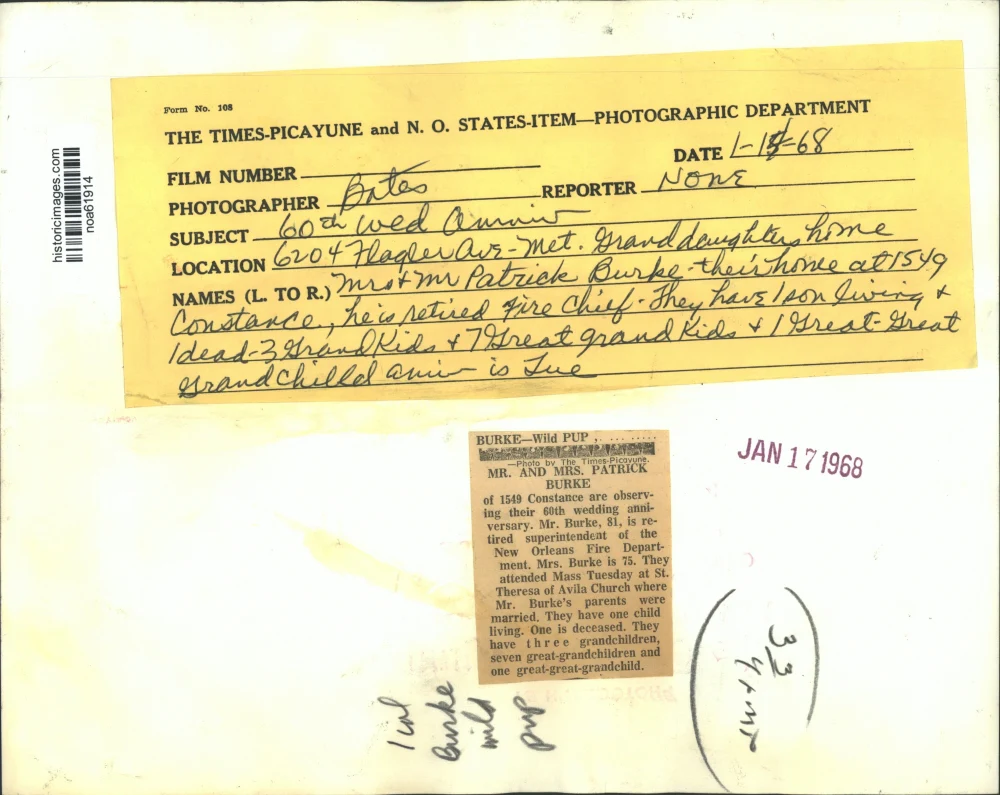 Form No. 108
THE TIMES-PICAYUNE and N. O. STATES-ITEM—PHOTOGRAPHIC DEPARTMENT
DATE 1-15-68
FILM NUMBER
PHOTOGRAPHER Bates REPORTER NONE
SUBJECT 60th Wed Anniv
LOCATION 6204 Flagler Ave - Met. Granddaughters home
NAMES (L. TO R.) Mrs + Mr Patrick Burke - their home at 1549
Constance, he is retired Fire Chief - They have 1 son living +
1 dead - 3 Grand Kids + 7 Great grand Kids + 1 Great-Great
Grand Chilld anniv is Tue
historicimages.com
noa61914
BURKE—Wild PUP . . . . . . . .
—Photo by The Times-Picayune.
MR. AND MRS. PATRICK
BURKE
of 1549 Constance are observ-
ing their 60th wedding anni-
versary. Mr. Burke, 81, is re-
tired superintendent of the
New Orleans Fire Depart-
ment. Mrs. Burke is 75. They
attended Mass Tuesday at St.
Theresa of Avila Church where
Mr. Burke's parents were
married. They have one child
living. One is deceased. They
have three grandchildren,
seven great-grandchildren and
one great-great-grandchild.
JAN 17 1968
1 col
Burke
wild
pup
33